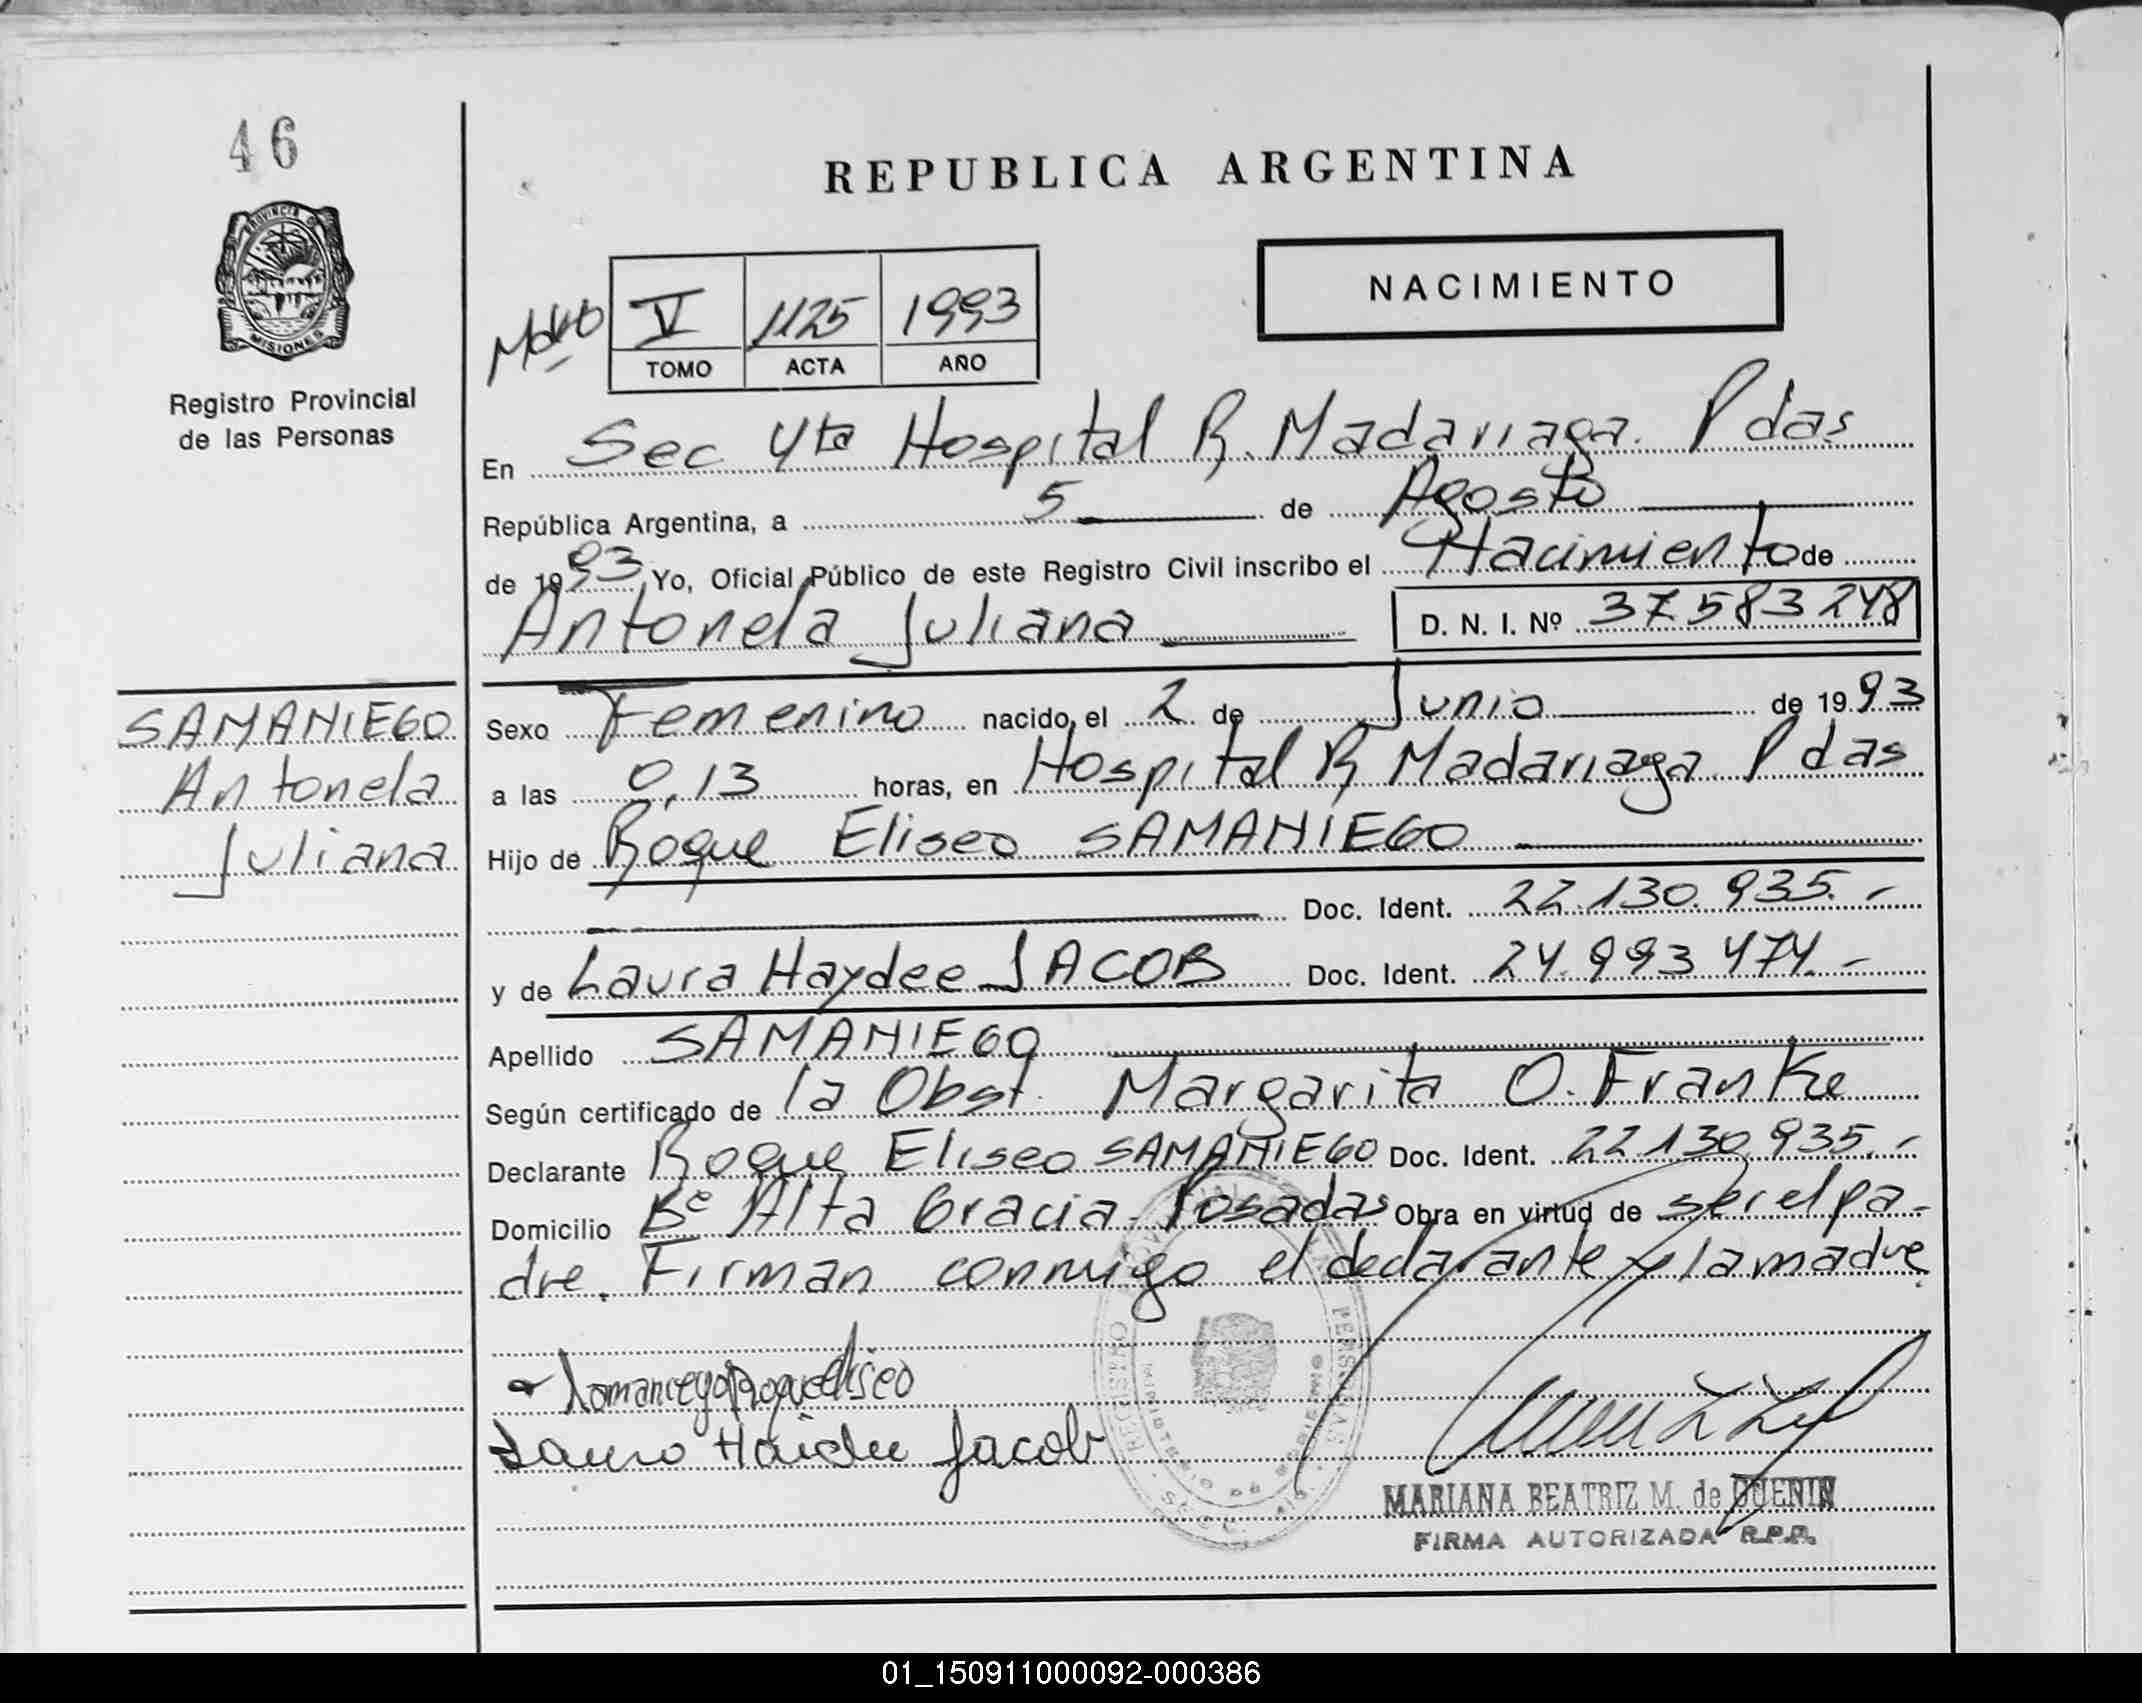 46
REPUBLICA ARGENTINA
PROVINCIA DE
MISIONES
Registro Provincial
de las Personas
V 1125 1993
TOMO ACTA AÑO
NACIMIENTO
En Sec 4ta Hospital R. Madariaga. Pdas
República Argentina, a 5 de Agosto
de 1993, Yo, Oficial Público de este Registro Civil inscribo el Nacimiento de
Antonela Juliana D. N. I. Nº 37583248
SAMANIEGO
Antonela
Juliana
Sexo Femenino nacido, el 2 de Junio de 1993
a las 0,13 horas, en Hospital R Madariaga Pdas
Hijo de Roque Eliseo SAMANIEGO
Doc. Ident. 22.130.935.-
y de Laura Haydee JACOB Doc. Ident. 24.993 474.-
Apellido SAMANIEGO
Según certificado de la Obst. Margarita O. Franke
Declarante Roque Eliseo SAMANIEGO Doc. Ident. 22 130 935.-
Domicilio Bº Alta Gracia Posadas Obra en virtud de ser el pa-
dre. Firman conmigo el declarante y la madre
Roque Eliseo
Jacob
MARIANA BEATRIZ M. de GUENIN
FIRMA AUTORIZADA R.P.P.
01_150911000092-000386